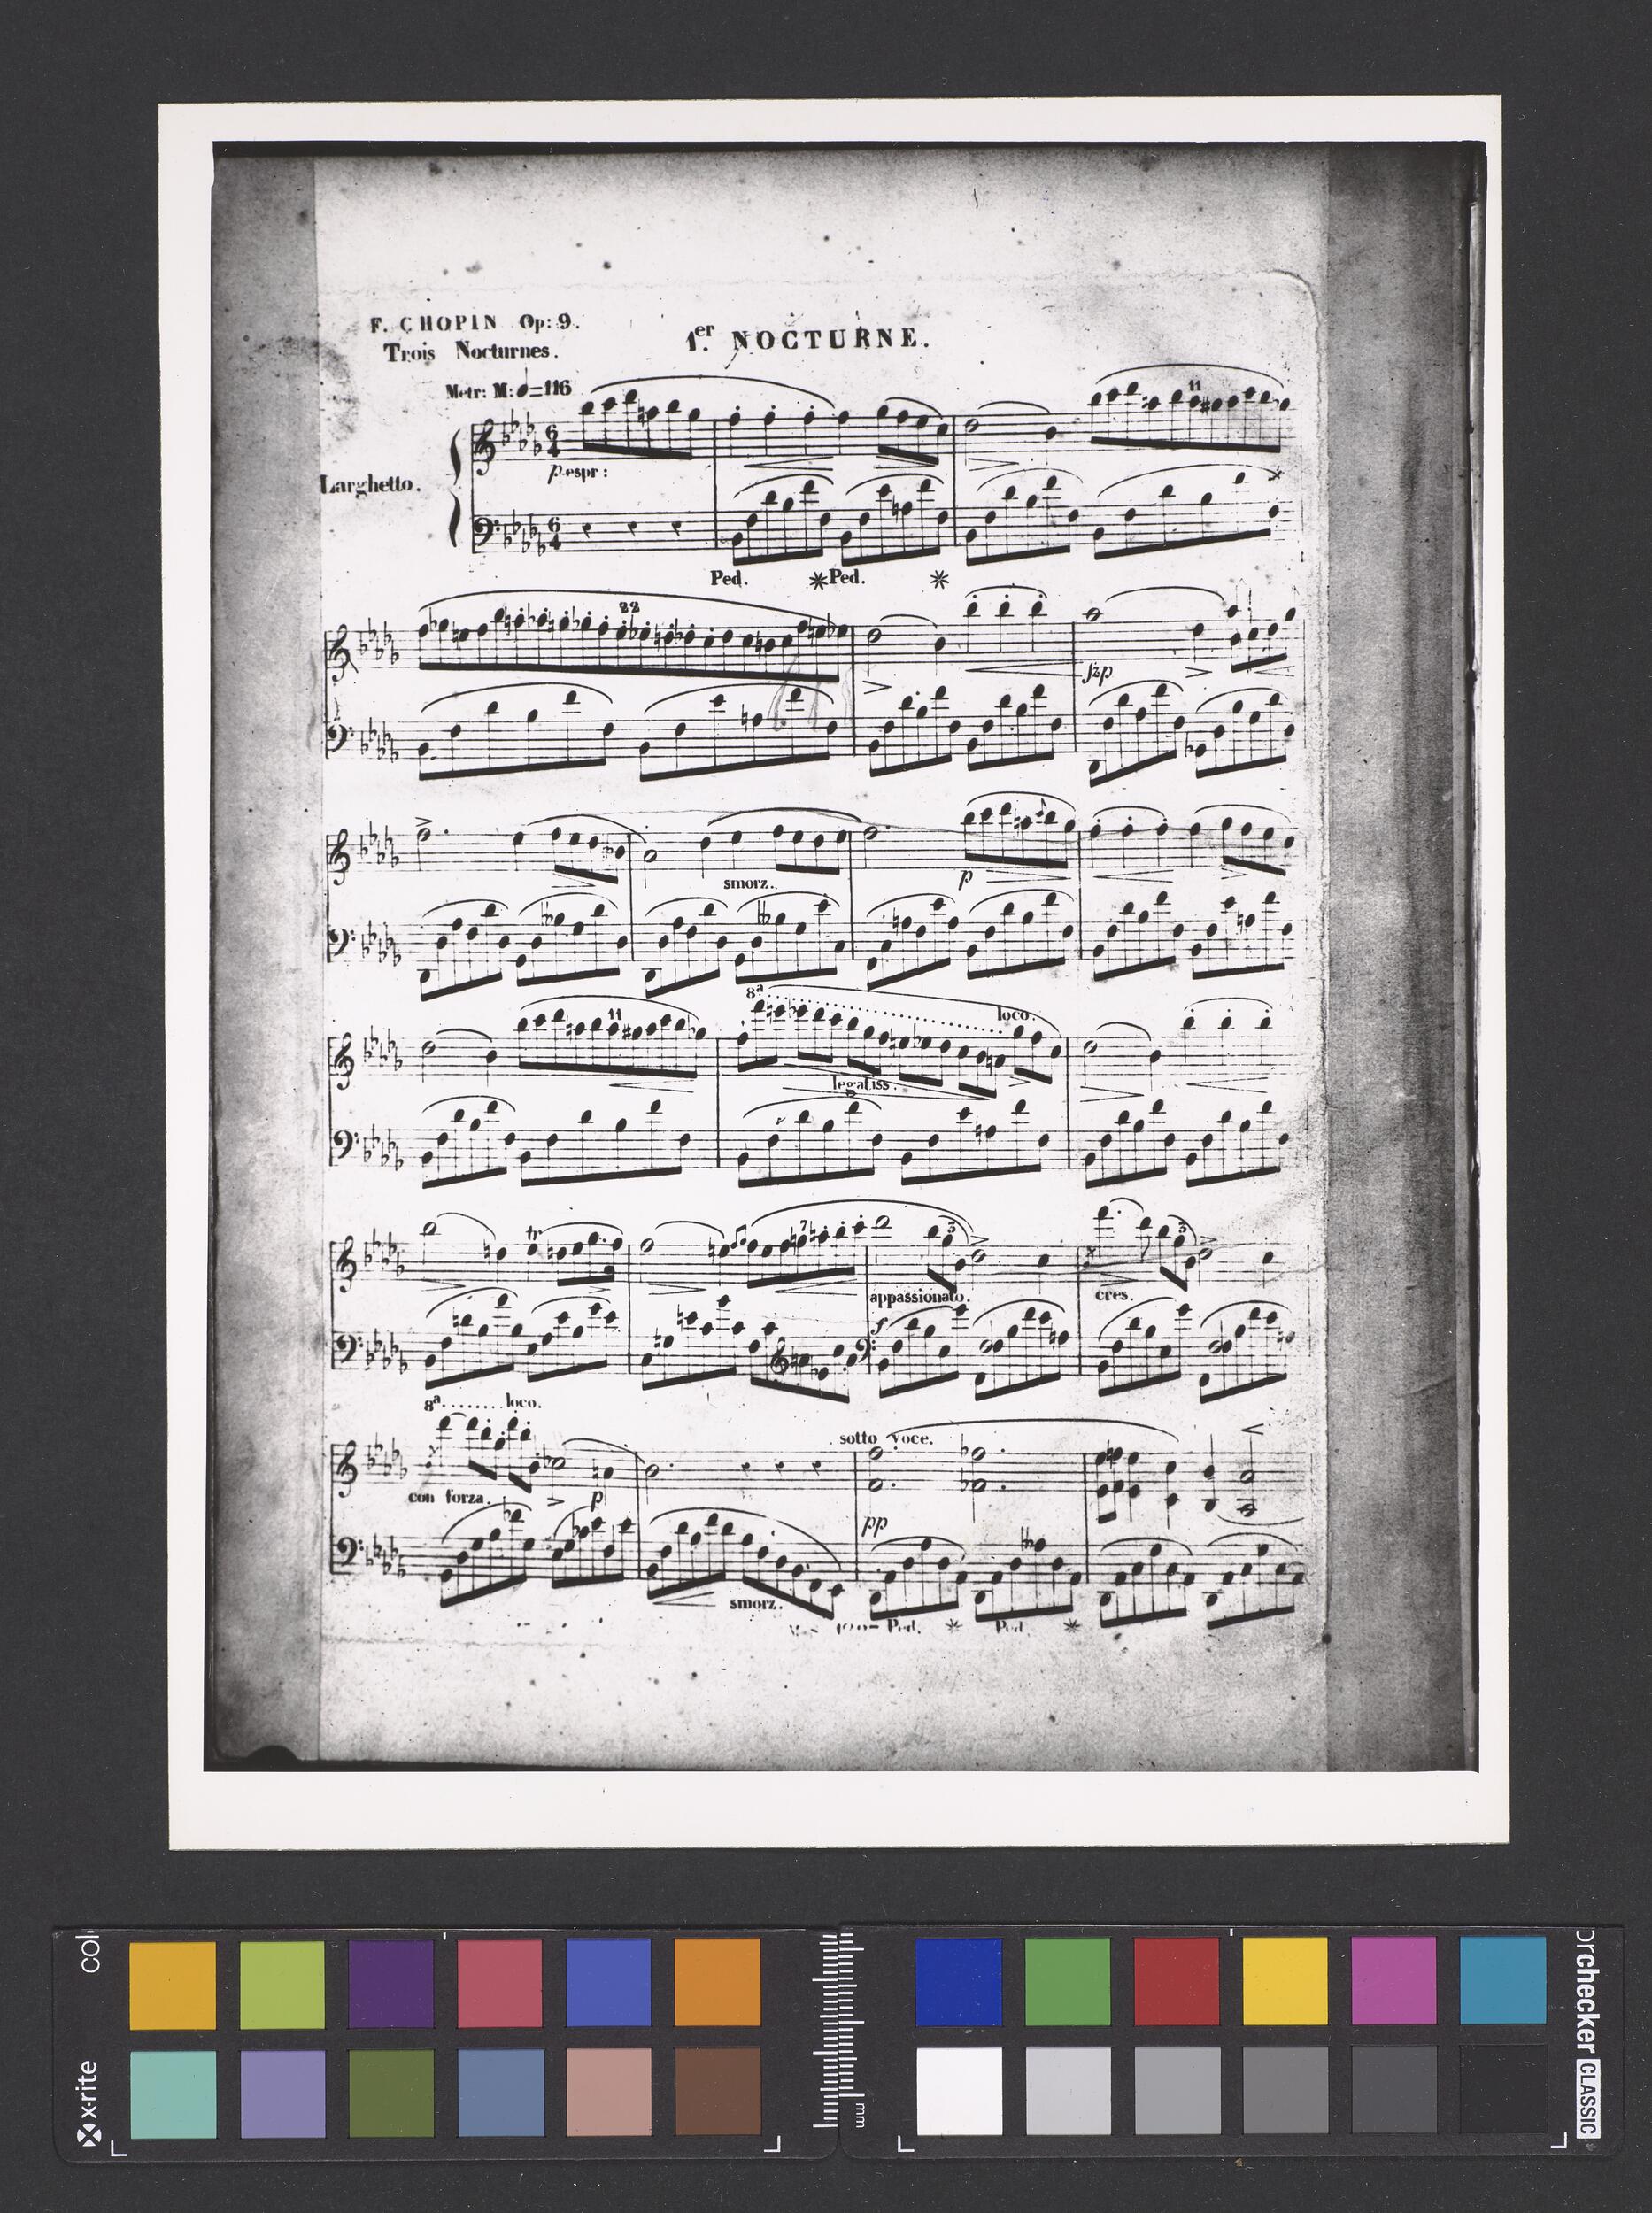 F. CHOPIN Op: 9.
Trois Nocturnes.
1.er NOCTURNE.
Metr: M: =116
Larghetto.
6
4
p espr:
11
6
4
Ped. Ped.
22
fzp
smorz.
p
8a loco.
11
legatiss.
tr
7
3
3
appassionato.
cres.
f
8a........loco.
sotto voce.
con forza.
p
pp
smorz.
Ped. Ped.
x-rite
mm
orchecker CLASSIC